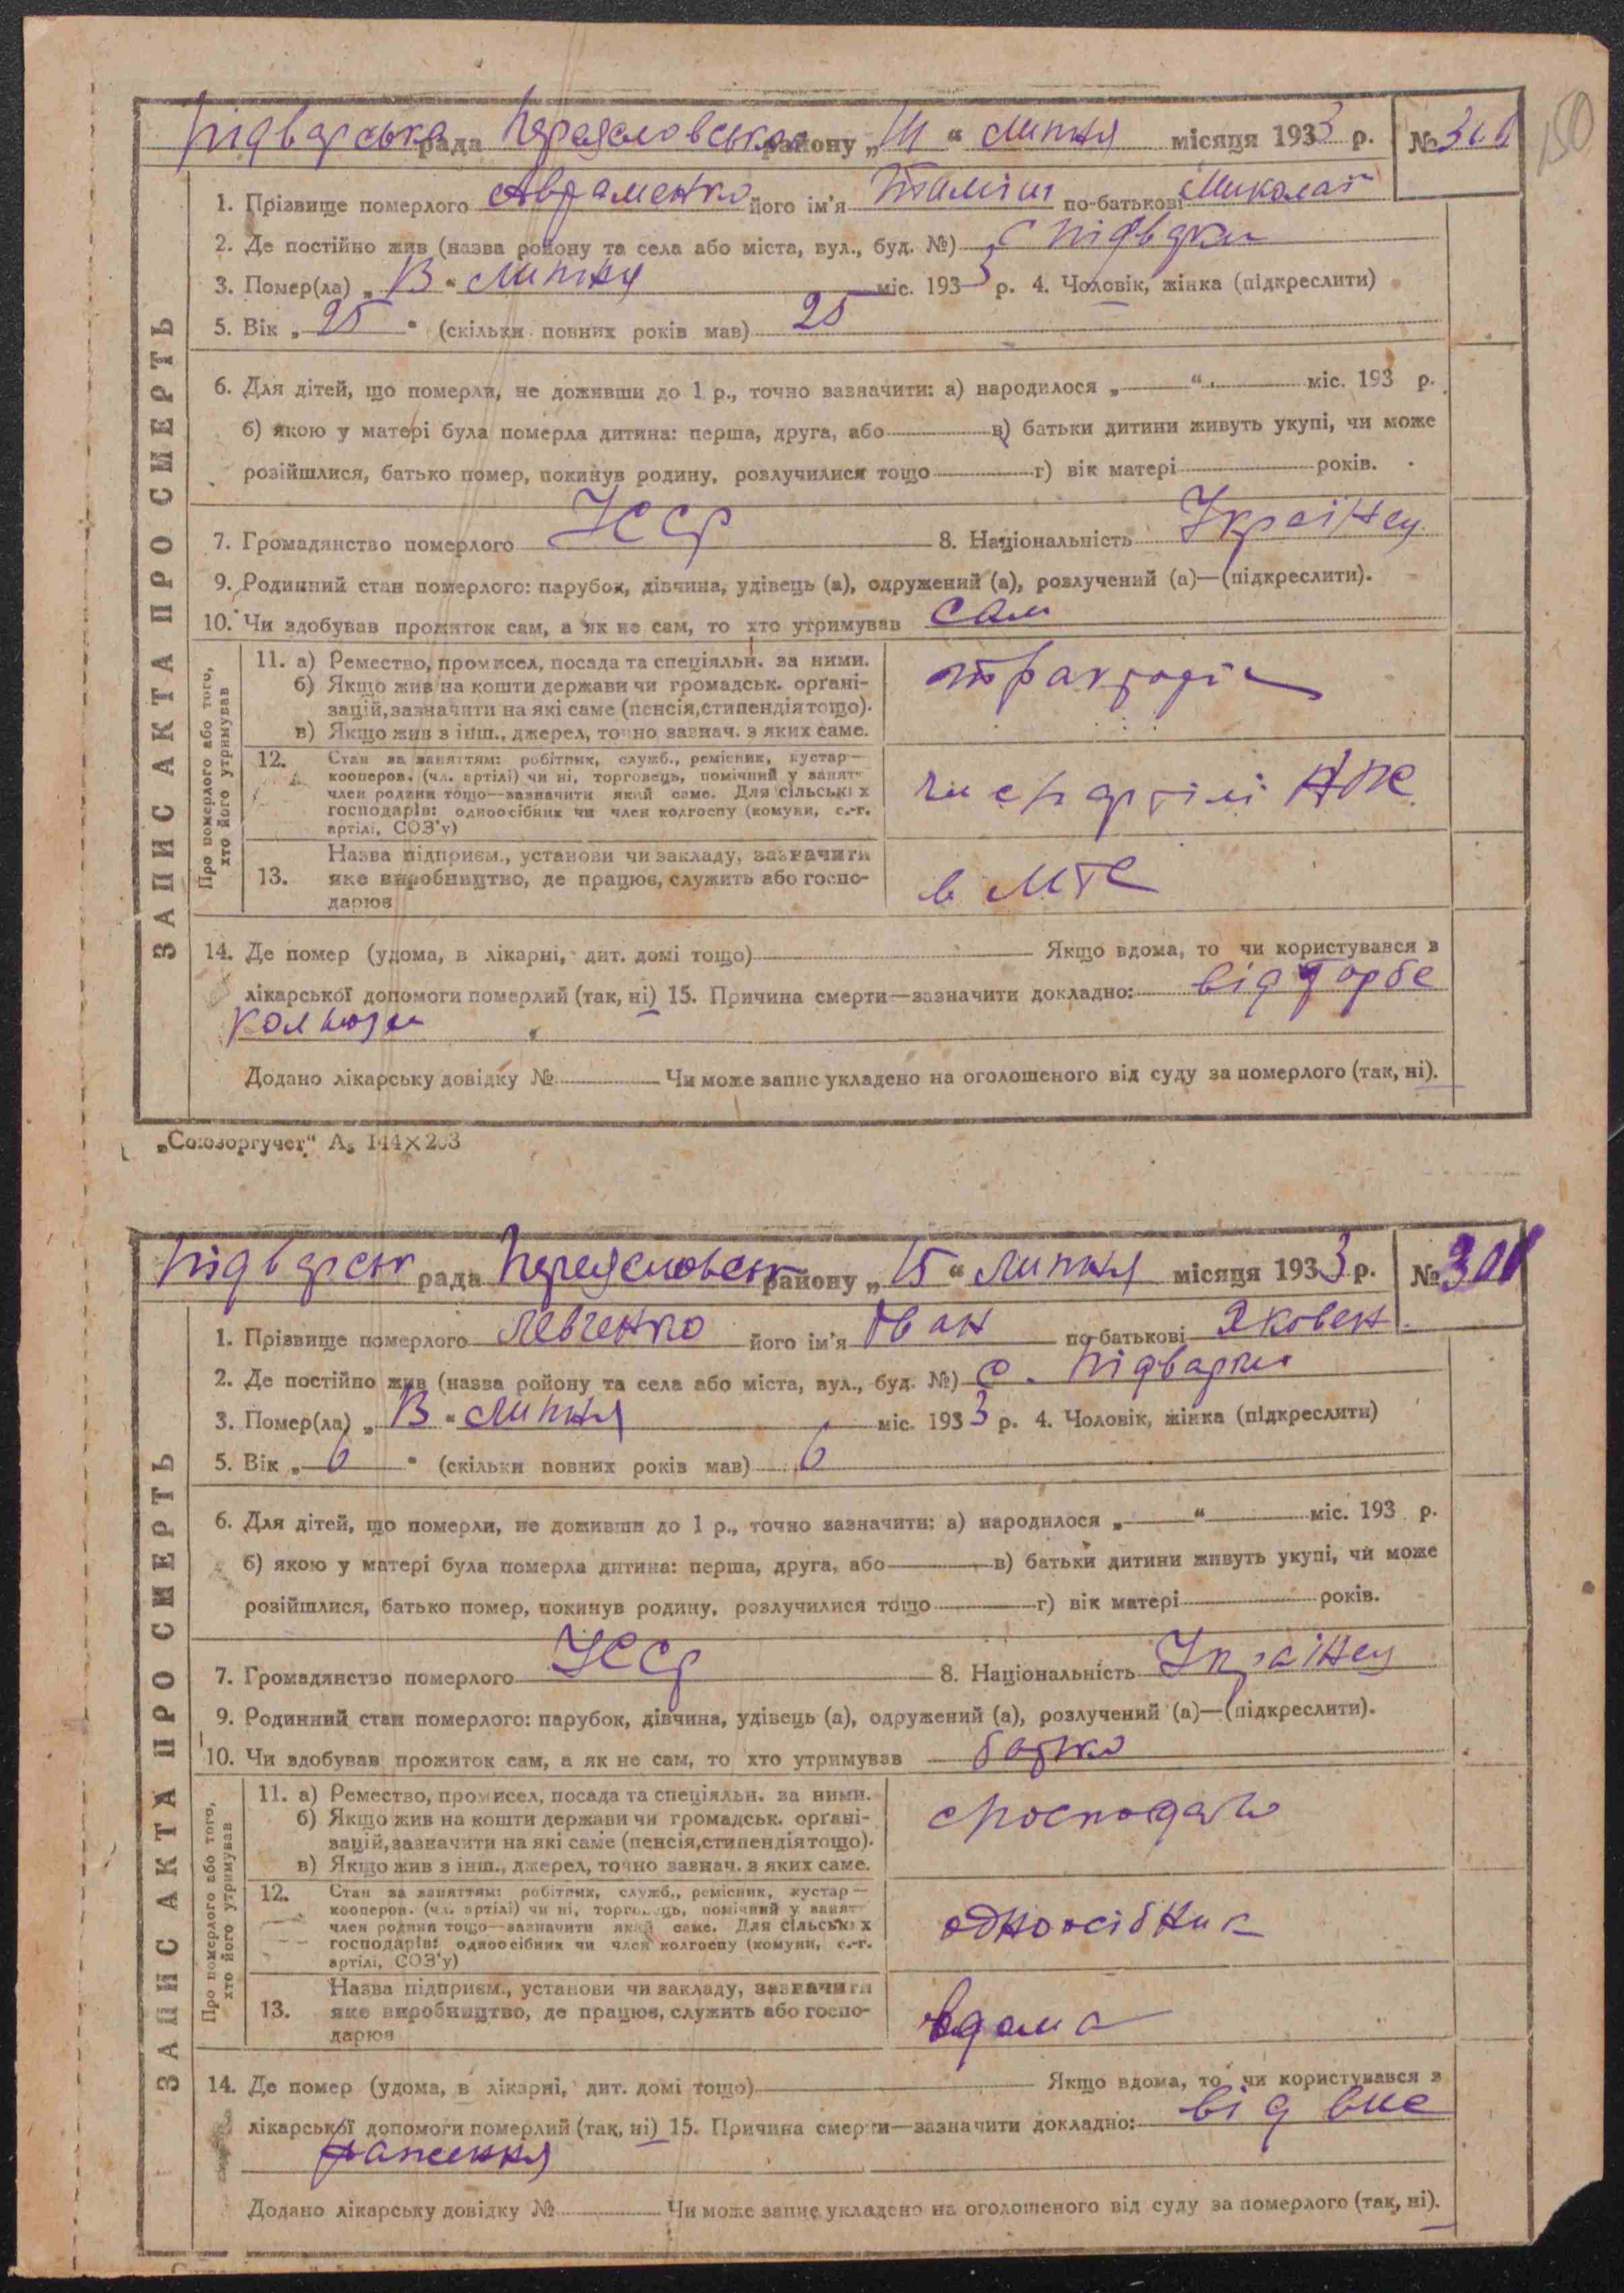 150
Підварська рада Переяславська району „ “ липня місяця 1933 р. №
1. Прізвище померлого Авраменко його ім'я по-батькові Миколає
2. Де постійно жив (назва району та села або міста, вул., буд. №) с Підварки
3. Помер(ла) „13“ липня міс. 1933 р. 4. Чоловік, жінка (підкреслити)
5. Вік „25“ (скільки повних років мав) 25
6. Для дітей, що померли, не доживши до 1 р., точно зазначити: а) народилося „ “ міс. 193 р.
б) якою у матері була померла дитина: перша, друга, або в) батьки дитини живуть укупі, чи може
розійшлися, батько помер, покинув родину, розлучилися тощо г) вік матері років.
7. Громадянство померлого УССР 8. Національність Українец
9. Родинний стан померлого: парубок, дівчина, удівець (а), одружений (а), розлучений (а)—(підкреслити).
10. Чи здобував прожиток сам, а як не сам, то хто утримував сам
ЗАПИС АКТА ПРО СМЕРТЬ
Про померлого або того, хто його утримував
11. а) Ремество, промисел, посада та спеціяльн. за ними.
б) Якщо жив на кошти держави чи громадськ. організацій, зазначити на які саме (пенсія, стипендія тощо).
в) Якщо жив з інш., джерел, точно зазнач. з яких саме.
12. Стан за заняттям: робітник, служб., ремісник, кустар—
кооперов. (чл. артілі) чи ні, торговець, помічний у занят-
член родини тощо—зазначити який саме. Для сільських
господарів: одноосібник чи член колгоспу (комуни, с.-г.
артілі, СОЗ'у)
13. Назва підприєм., установи чи закладу, зазначити
яке виробництво, де працює, служить або госпо-
дарює
в МТС
14. Де помер (удома, в лікарні, дит. домі тощо) Якщо вдома, то чи користувався з
лікарської допомоги померлий (так, ні) 15. Причина смерти—зазначити докладно: від
Додано лікарську довідку № Чи може запис укладено на оголошеного від суду за померлого (так, ні).
„Союзоргучет“ А₅ 144×203
Підварськ рада Переяславськ району „15“ липня місяця 1933 р. № 301
1. Прізвище померлого Левченко його ім'я Іван по-батькові Яковен.
2. Де постійно жив (назва району та села або міста, вул., буд. №) с. Підварки
3. Помер(ла) „13“ липня міс. 1933 р. 4. Чоловік, жінка (підкреслити)
5. Вік „6“ (скільки повних років мав) 6
6. Для дітей, що померли, не доживши до 1 р., точно зазначити: а) народилося „ “ міс. 193 р.
б) якою у матері була померла дитина: перша, друга, або в) батьки дитини живуть укупі, чи може
розійшлися, батько помер, покинув родину, розлучилися тощо г) вік матері років.
7. Громадянство померлого УССР 8. Національність Українец
9. Родинний стан померлого: парубок, дівчина, удівець (а), одружений (а), розлучений (а)—(підкреслити).
10. Чи здобував прожиток сам, а як не сам, то хто утримував батько
ЗАПИС АКТА ПРО СМЕРТЬ
Про померлого або того, хто його утримував
11. а) Ремество, промисел, посада та спеціяльн. за ними.
б) Якщо жив на кошти держави чи громадськ. організацій, зазначити на які саме (пенсія, стипендія тощо).
в) Якщо жив з інш., джерел, точно зазнач. з яких саме.
12. Стан за заняттям: робітник, служб., ремісник, кустар—
кооперов. (чл. артілі) чи ні, торговець, помічний у занят-
член родини тощо—зазначити який саме. Для сільських
господарів: одноосібник чи член колгоспу (комуни, с.-г.
артілі, СОЗ'у)
одноосібник
13. Назва підприєм., установи чи закладу, зазначити
яке виробництво, де працює, служить або госпо-
дарює
вдома
14. Де помер (удома, в лікарні, дит. домі тощо) Якщо вдома, то чи користувався з
лікарської допомоги померлий (так, ні) 15. Причина смерти—зазначити докладно: від вис
наження
Додано лікарську довідку № Чи може запис укладено на оголошеного від суду за померлого (так, ні).